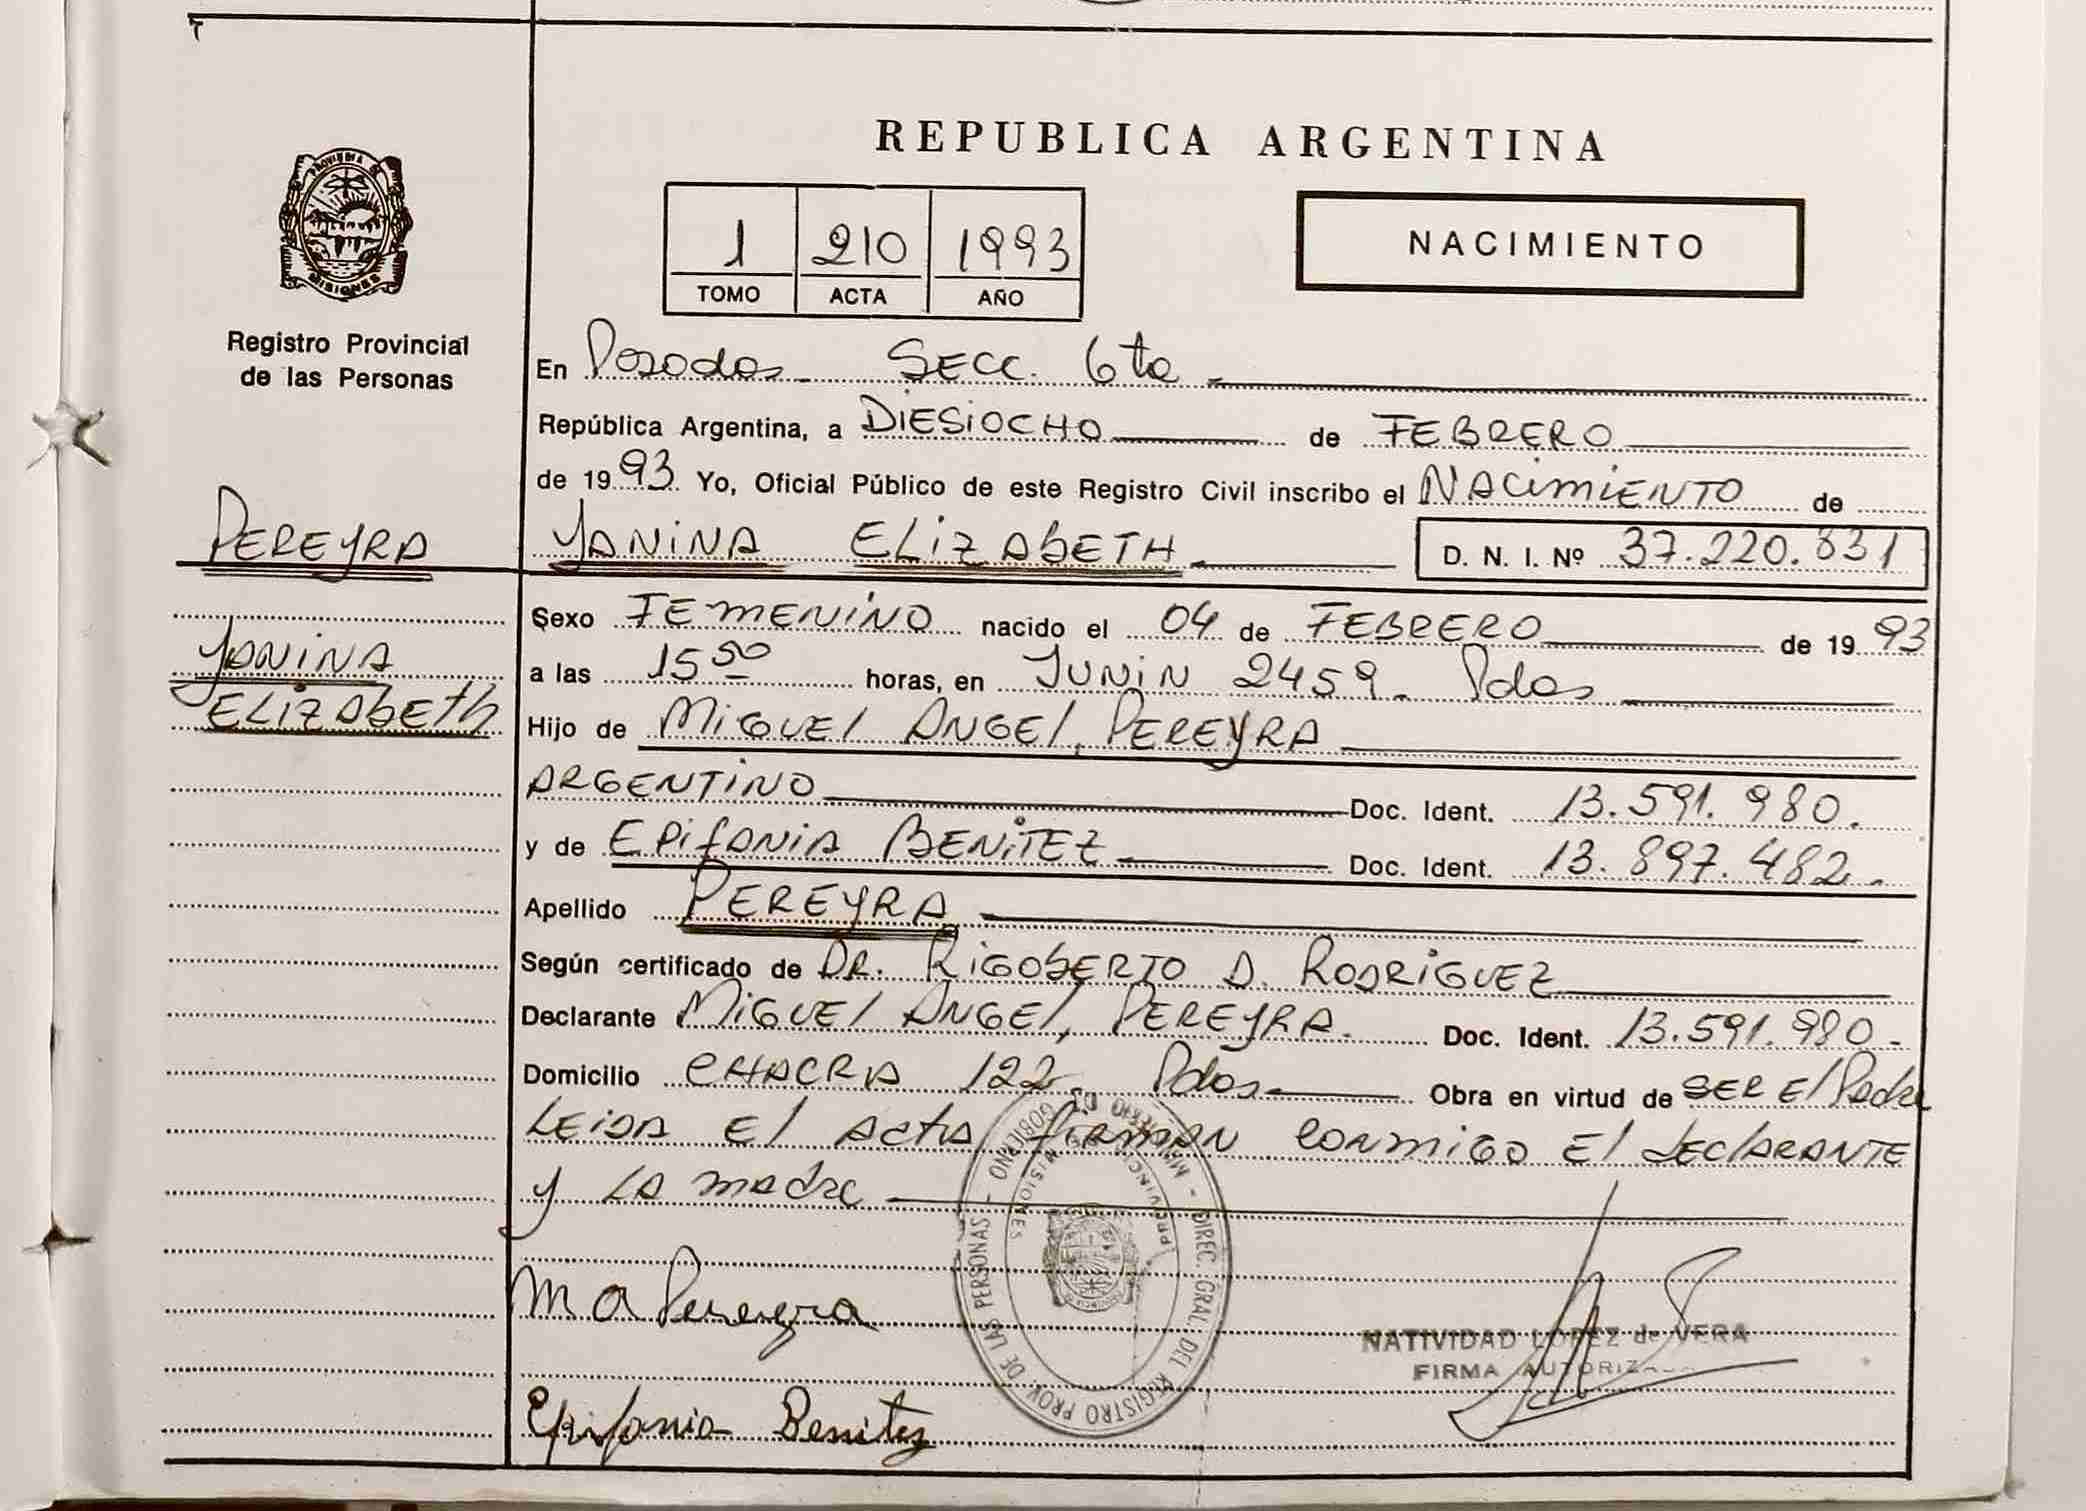 REPUBLICA ARGENTINA
PROVINCIA DE
MISIONES
Registro Provincial
de las Personas
1 210 1993
TOMO ACTA AÑO
NACIMIENTO
En Posadas SECC. 6ta
República Argentina, a DIESIOCHO de FEBRERO
de 1993 Yo, Oficial Público de este Registro Civil inscribo el NACIMIENTO de
PEREYRA YANINA ELIZABETH D. N. I. Nº 37.220.831
YANINA
ELIZABETH
Sexo FEMENINO nacido el 04 de FEBRERO de 1993
a las 15 50 horas, en JUNIN 2459. Pdas
Hijo de MIGUEL ANGEL, PEREYRA
ARGENTINO Doc. Ident. 13.591.980.
y de EPIFANIA BENITEZ Doc. Ident. 13.897.482.
Apellido PEREYRA
Según certificado de DR. RIGOBERTO D. RODRIGUEZ
Declarante MIGUEL ANGEL, PEREYRA. Doc. Ident. 13.591.980.
Domicilio CHACRA 122. Pdas Obra en virtud de SER El Padre
LEIDA El Acta, firman conmigo El declarante
y la madre
MINISTERIO DE GOBIERNO - DIREC. GRAL. DEL REGISTRO PROV. DE LAS PERSONAS -
PROVINCIA DE MISIONES
M A Pereyra
NATIVIDAD LOPEZ de VERA
FIRMA AUTORIZADA
Epifania Benitez